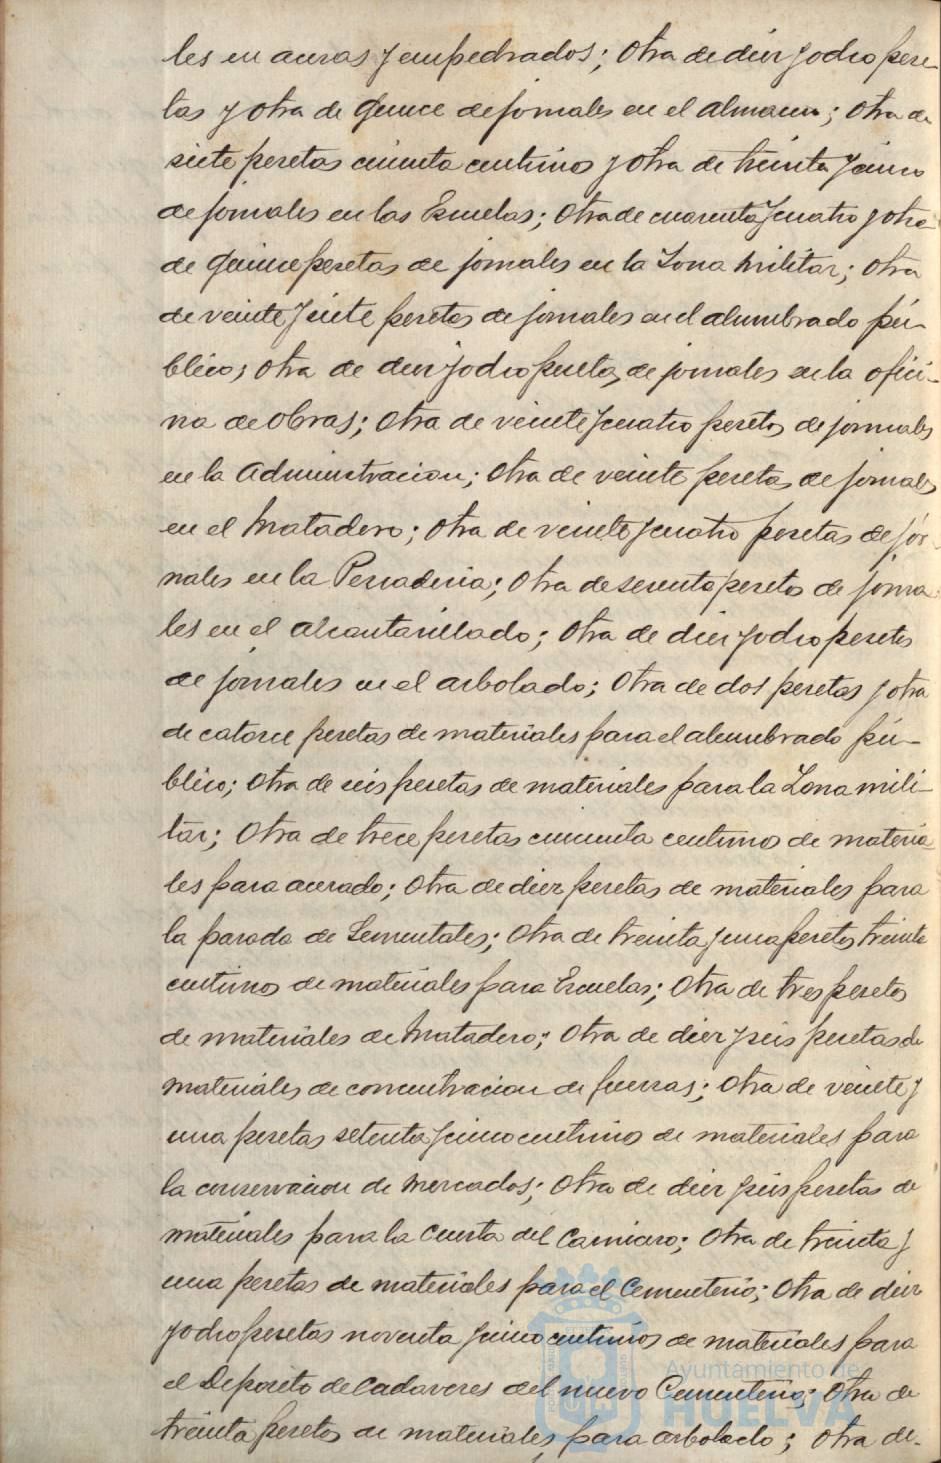 les en aceras y empedrados; Otra de diez y ocho pese-
tas y otra de quince de jornales en el almacen; Otra de
siete pesetas cincuenta centimos y otra de treinta y cinco
de jornales en las Escuelas; Otra de cuarenta y cuatro y otra
de quince pesetas de jornales en la Zona Militar; Otra
de veinte y siete pesetas de jornales en el alumbrado pú-
blico; Otra de diez y ocho pesetas de jornales en la ofici-
na de Obras; Otra de veinte y cuatro pesetas de jornales
en la Administracion; Otra de veinte pesetas de jornales
en el Matadero; Otra de veinte y cuatro pesetas de jor-
nales en la Pescaderia; Otra de sesenta pesetas de jorna
les en el alcantarillado; Otra de diez y ocho pesetas
de jornales en el arbolado; Otra de dos pesetas y otra
de catorce pesetas de materiales para el alumbrado pú-
blico; Otra de seis pesetas de materiales para la Zona mili-
tar; Otra de trece pesetas cincuenta centimos de materia
les para acerado; Otra de diez pesetas de materiales para
la parada de Sementales; Otra de treinta y una pesetas treinta
centimos de materiales para Escuelas; Otra de tres pesetas
de materiales de Matadero; Otra de diez y seis pesetas de
materiales de concentracion de fuerzas; Otra de veinte y
una pesetas setenta y cinco centimos de materiales para
la conservacion de Mercados; Otra de diez y seis pesetas de
materiales para la Cuesta del Carnicero; Otra de treinta y
una pesetas de materiales para el Cementerio; Otra de diez
y ocho pesetas noventa y cinco centimos de materiales para
el Deposito de Cadaveres del nuevo Cementerio; Otra de
treinta pesetas de materiales para arbolado; Otra de-
Ayuntamiento de
HUELVA